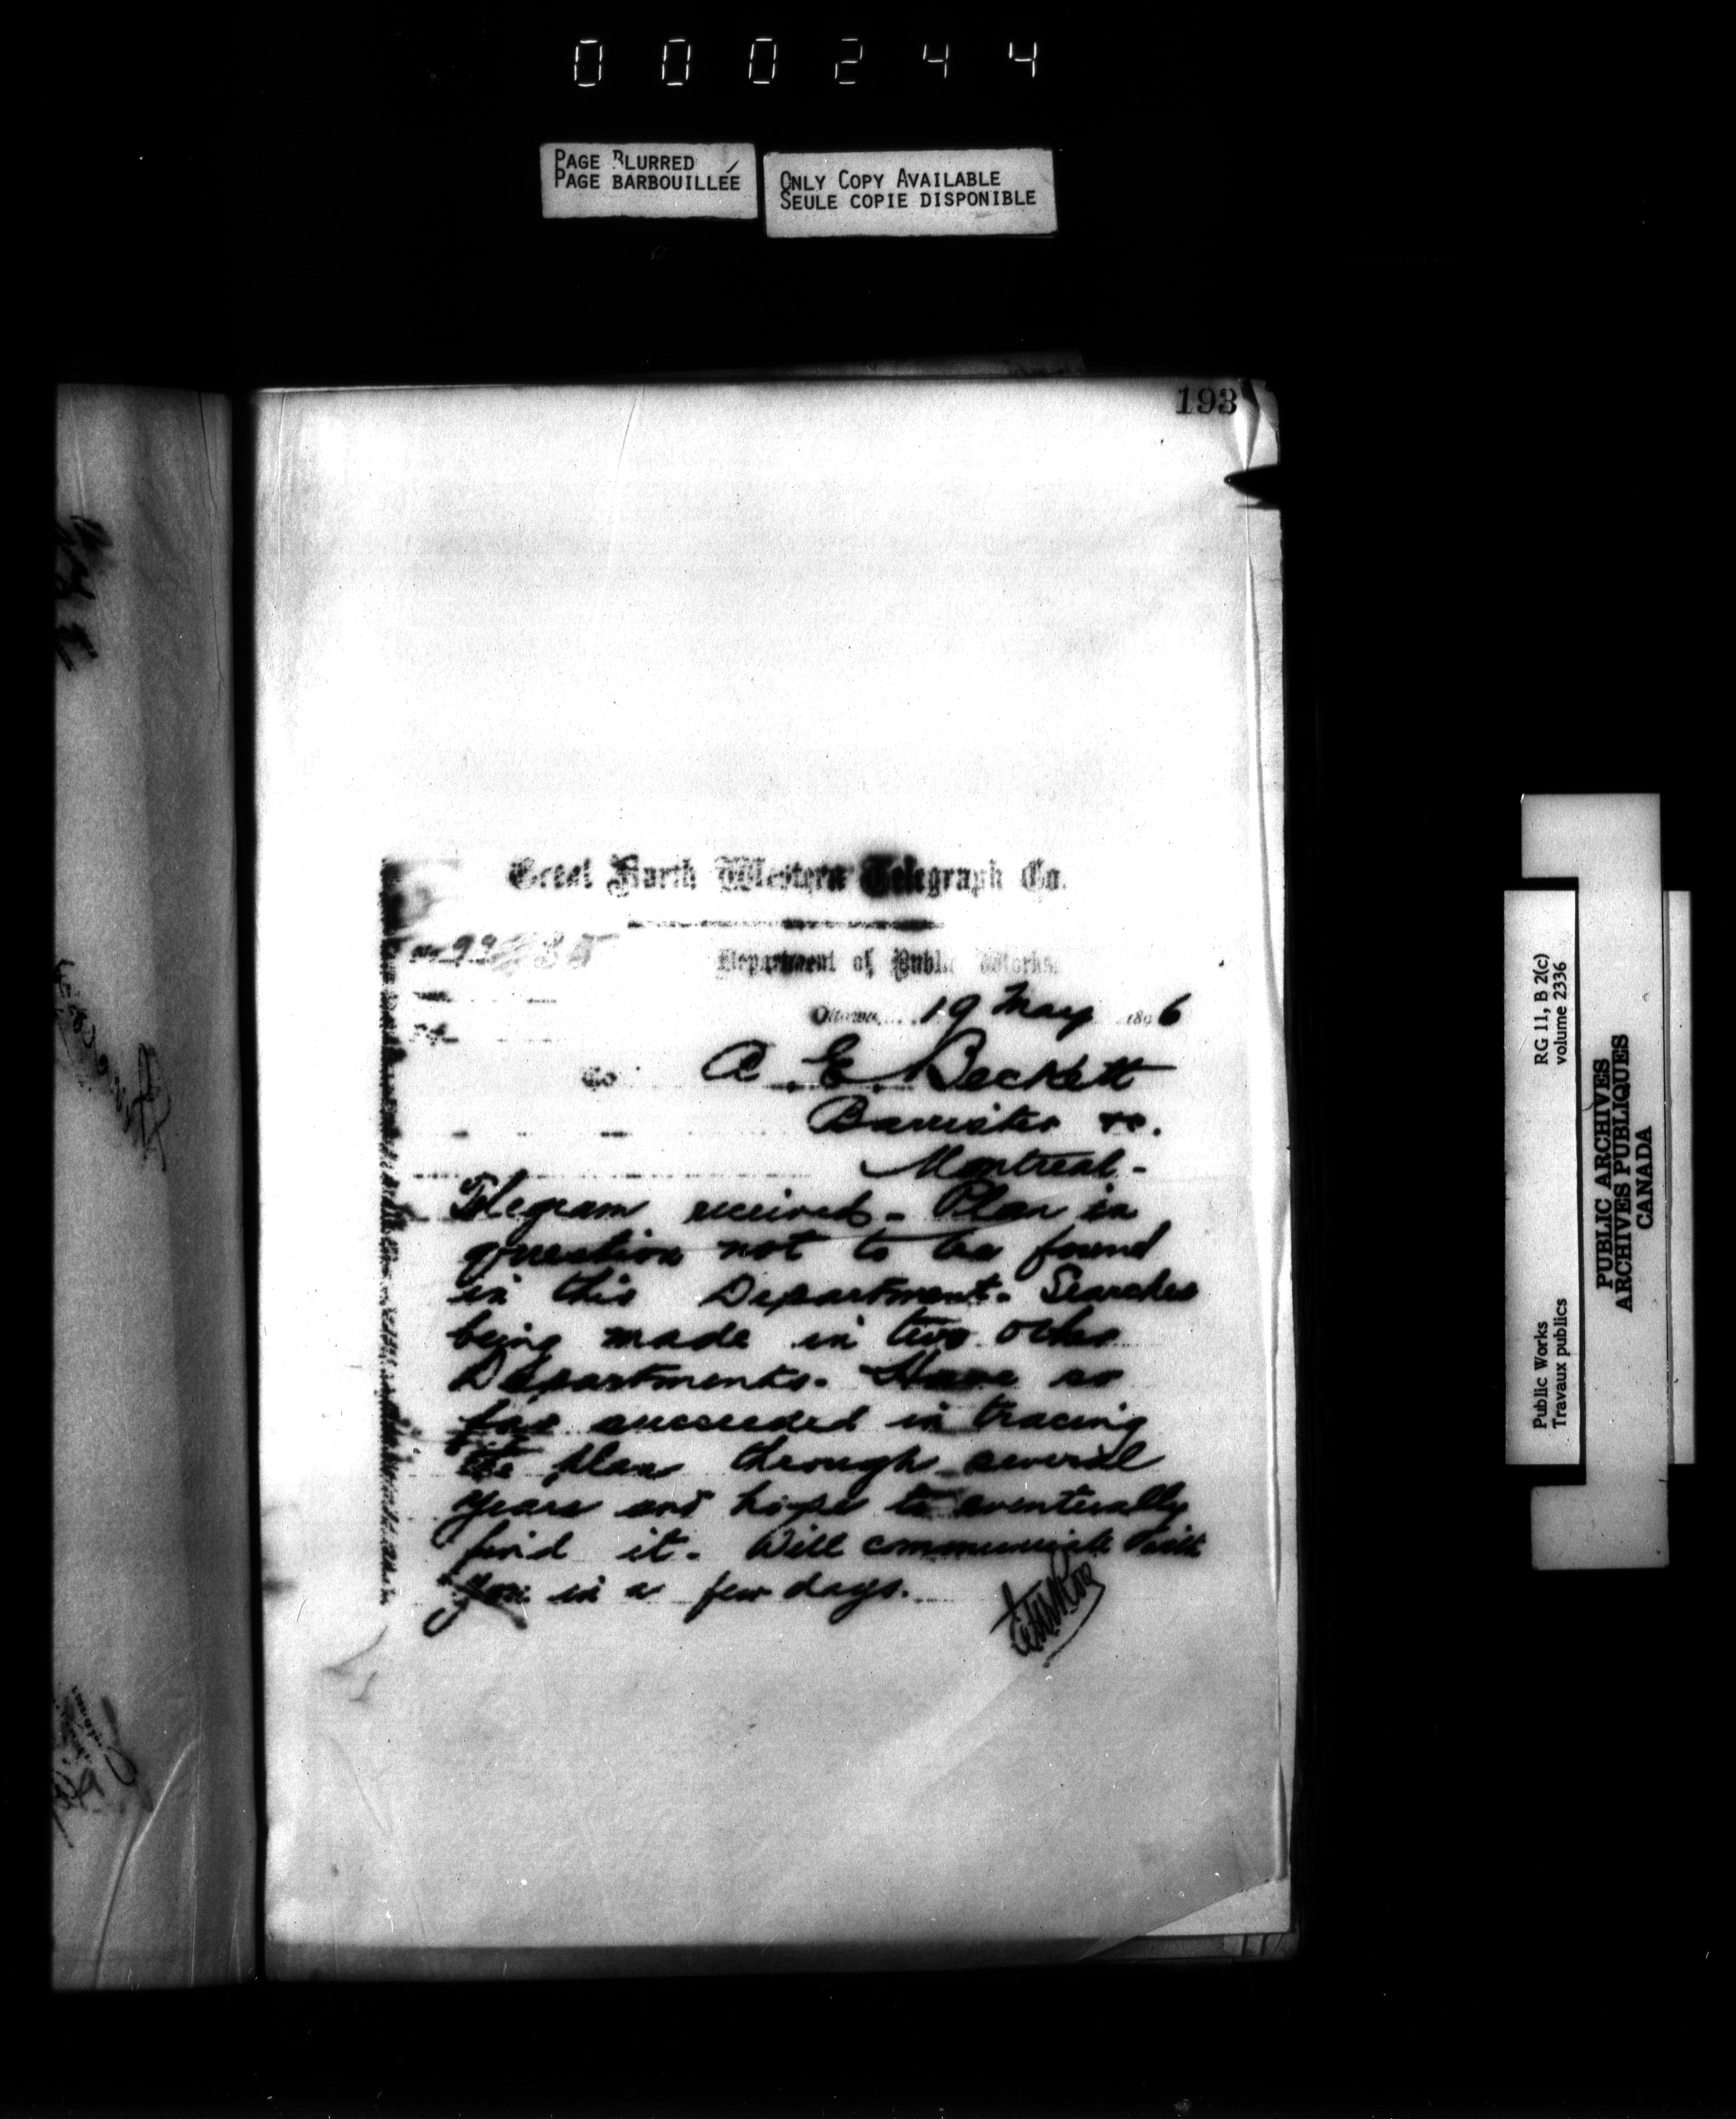 000244
PAGE BLURRED
PAGE BARBOUILLÉE
ONLY COPY AVAILABLE
SEULE COPIE DISPONIBLE
193
Great North Western Telegraph Co.
Department of Public Works.
Ottawa, 19 May 1896
To A. E. Beckett
Barrister &c.
Montreal-
Telegram received - Plan in
question not to be found
in this Department - Searches
being made in two other
Departments - Have so
far succeeded in tracing
the plan through several
years and hope to eventually
find it - Will communicate with
you in a few days.
RG 11, B 2(c)
volume 2336
Public Works
Travaux publics
PUBLIC ARCHIVES
ARCHIVES PUBLIQUES
CANADA